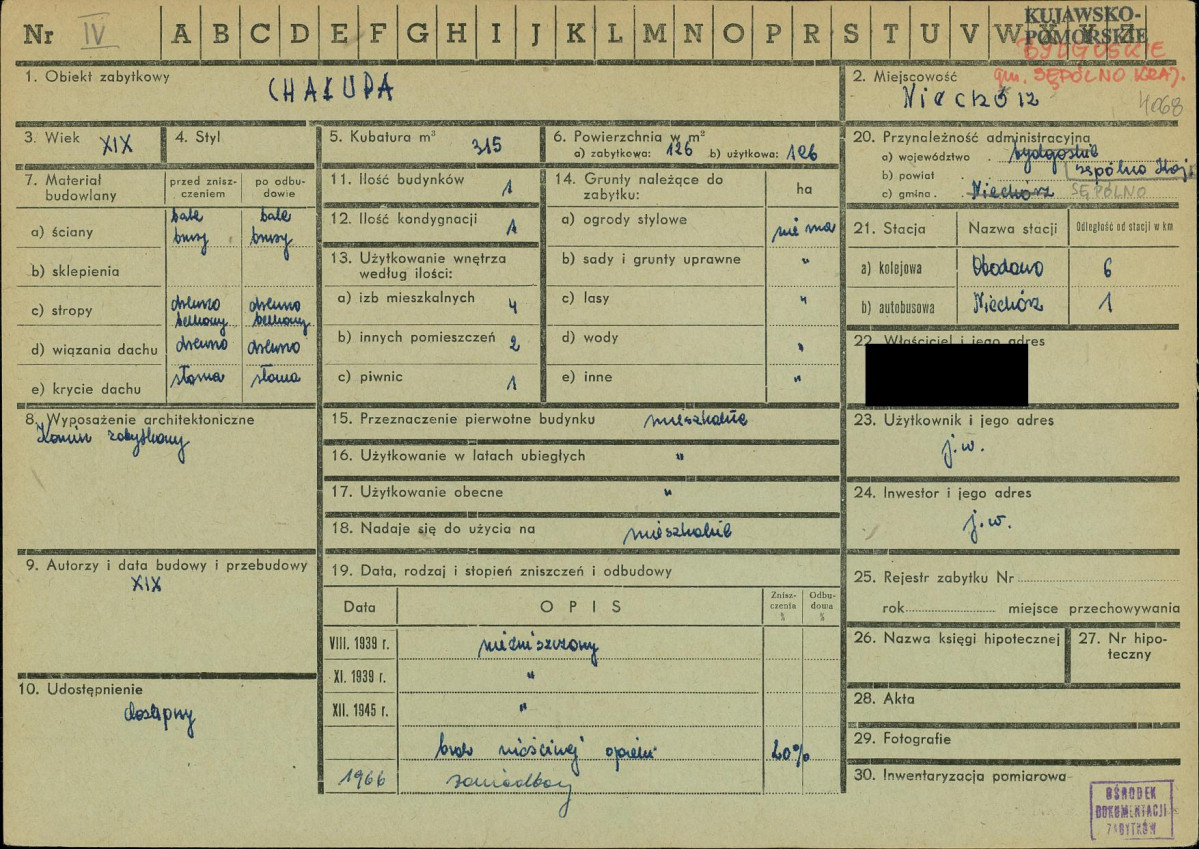 Nr IV A B C D E F G H I J K L M N O P R S T U V W X Y Z
KUJAWSKO-
POMORSKIE
BYDGOSKIE
gm. SĘPÓLNO KRAJ.
1. Obiekt zabytkowy
CHAŁUPA
2. Miejscowość
Niechórz
4068
3. Wiek XIX
4. Styl
5. Kubatura m³ 315
6. Powierzchnia w m²
a) zabytkowa: 126 b) użytkowa: 126
7. Materiał budowlany
przed zniszczeniem
po odbudowie
a) ściany
bale bale
b) sklepienia
c) stropy
drewno drewno
belkowy belkowy
d) wiązania dachu drewno drewno
e) krycie dachu słoma słoma
8. Wyposażenie architektoniczne
Komin zabytkowy
9. Autorzy i data budowy i przebudowy
XIX
10. Udostępnienie
dostępny
11. Ilość budynków 1
12. Ilość kondygnacji 1
13. Użytkowanie wnętrza
według ilości:
a) izb mieszkalnych 4
b) innych pomieszczeń 2
c) piwnic 1
14. Grunty należące do
zabytku:
ha
a) ogrody stylowe nie ma
b) sady i grunty uprawne "
c) lasy "
d) wody "
e) inne "
15. Przeznaczenie pierwotne budynku mieszkalne
16. Użytkowanie w latach ubiegłych "
17. Użytkowanie obecne "
18. Nadaje się do użycia na mieszkalne
19. Data, rodzaj i stopień zniszczeń i odbudowy
Data
OPIS
Zniszczenia %
Odbudowa %
VIII. 1939 r. niezniszczony
XI. 1939 r. "
XII. 1945 r. "
brak opieki 20%
1966
20. Przynależność administracyjna
a) województwo bydgoskie
b) powiat
c) gmina Niechórz SĘPÓLNO
21. Stacja
Nazwa stacji
Odległość od stacji w km
a) kolejowa 6
b) autobusowa Niechórz 1
22. Właściciel i jego adres
23. Użytkownik i jego adres
j.w.
24. Inwestor i jego adres
j.w.
25. Rejestr zabytku Nr
rok miejsce przechowywania
26. Nazwa księgi hipotecznej
27. Nr hipo-
teczny
28. Akta
29. Fotografie
30. Inwentaryzacja pomiarowa
OŚRODEK
DOKUMENTACJI
ZABYTKÓW